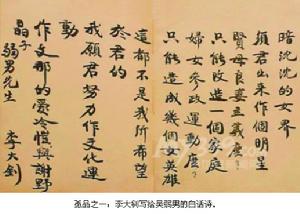 暗沈沈的女界
須君出來作個明星
賢母良妻主義麽
只能改造一個家庭
婦女參政運動麽
只能造成幾個女英雄
這都不是我所希望
於君的
我願君努力作文化運
動
作支那的愛冷愷與謝野
晶子
弱男先生
李大釗
展品之一:李大钊写给吴弱男的白话诗。